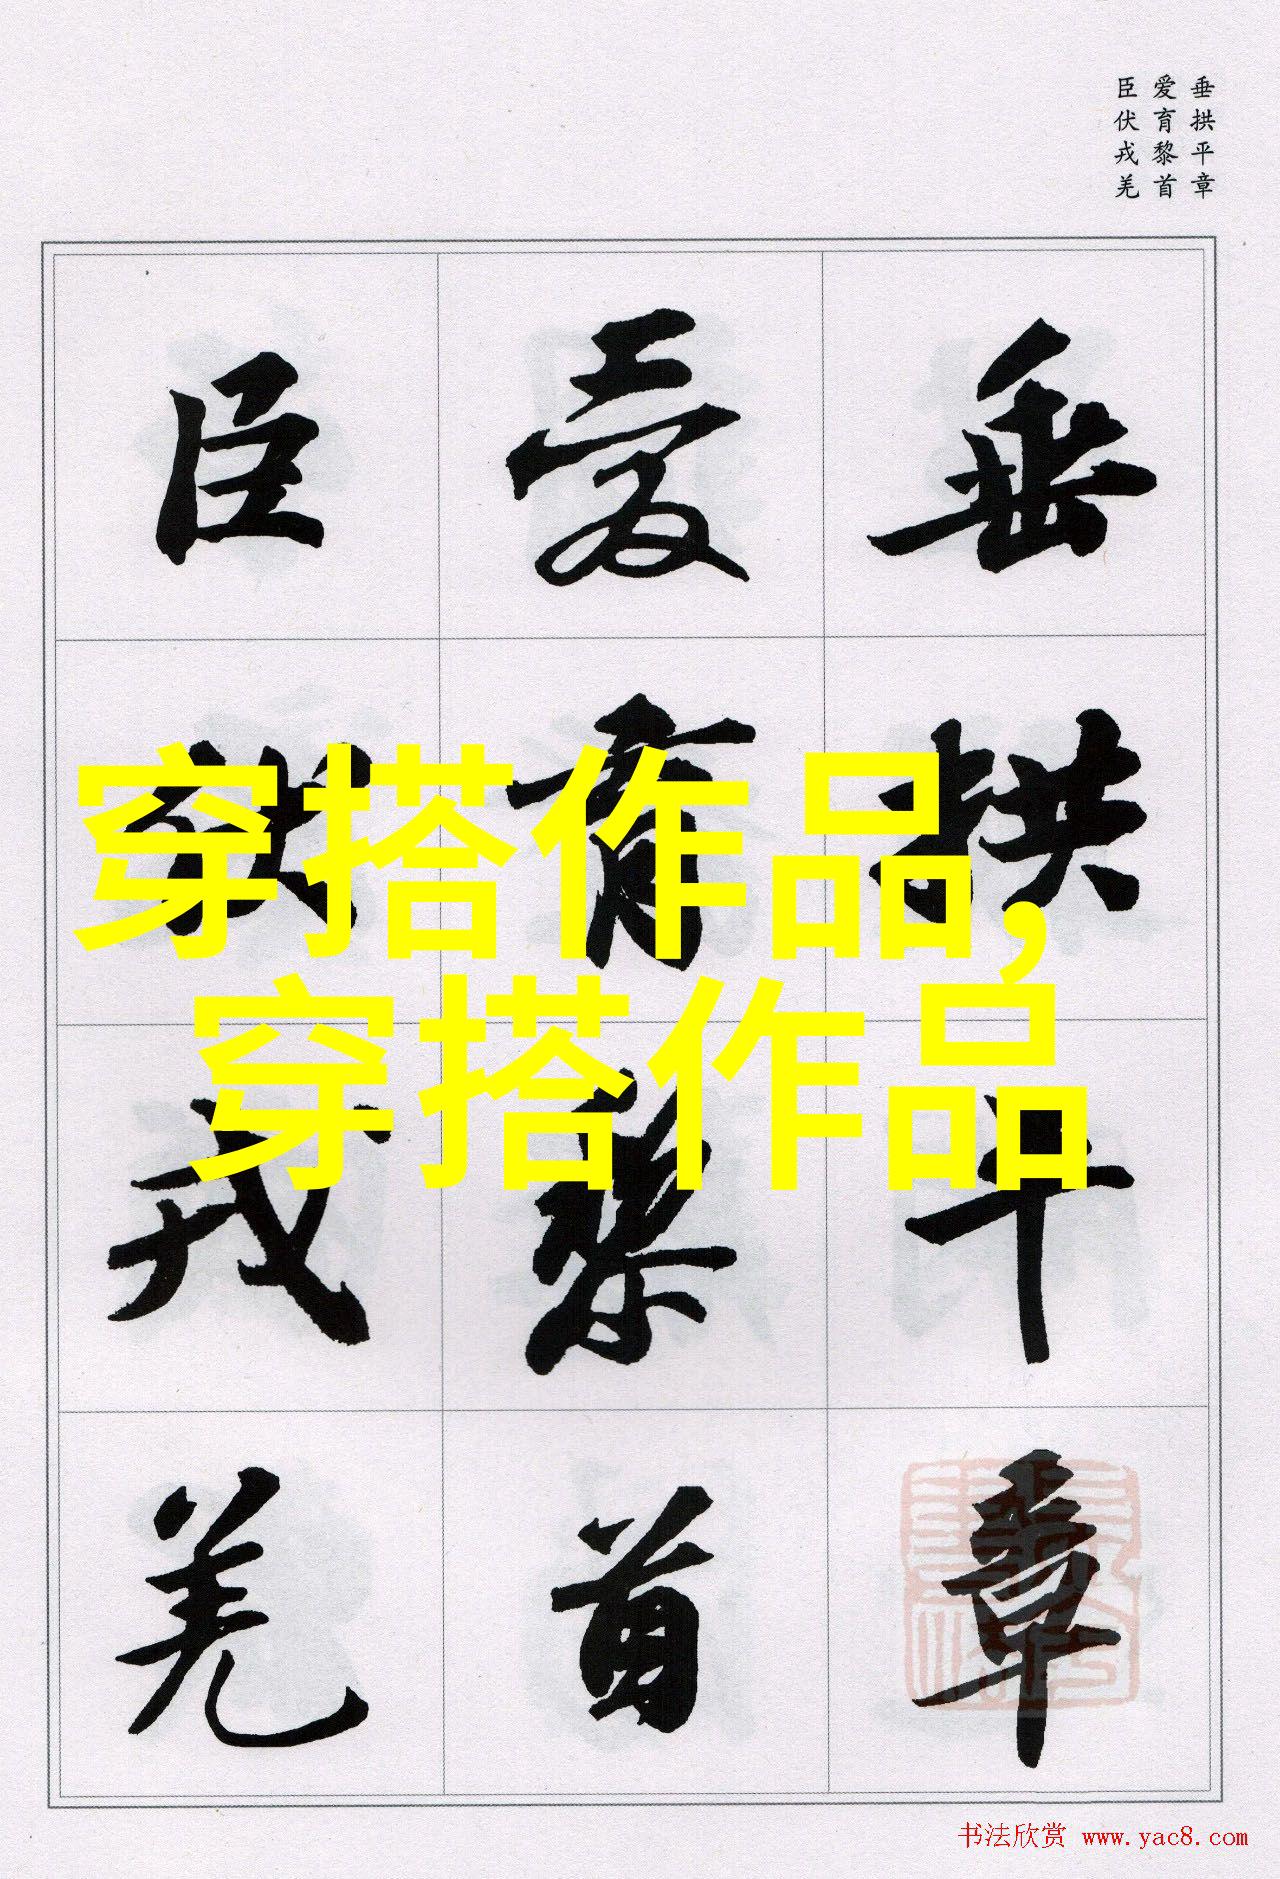 垂拱平章
爱育黎首
臣伏戎羌
垂拱平章
爱育黎首
臣伏戎羌
穿搭作品,
穿搭作品
书法欣赏 www.yac8.com